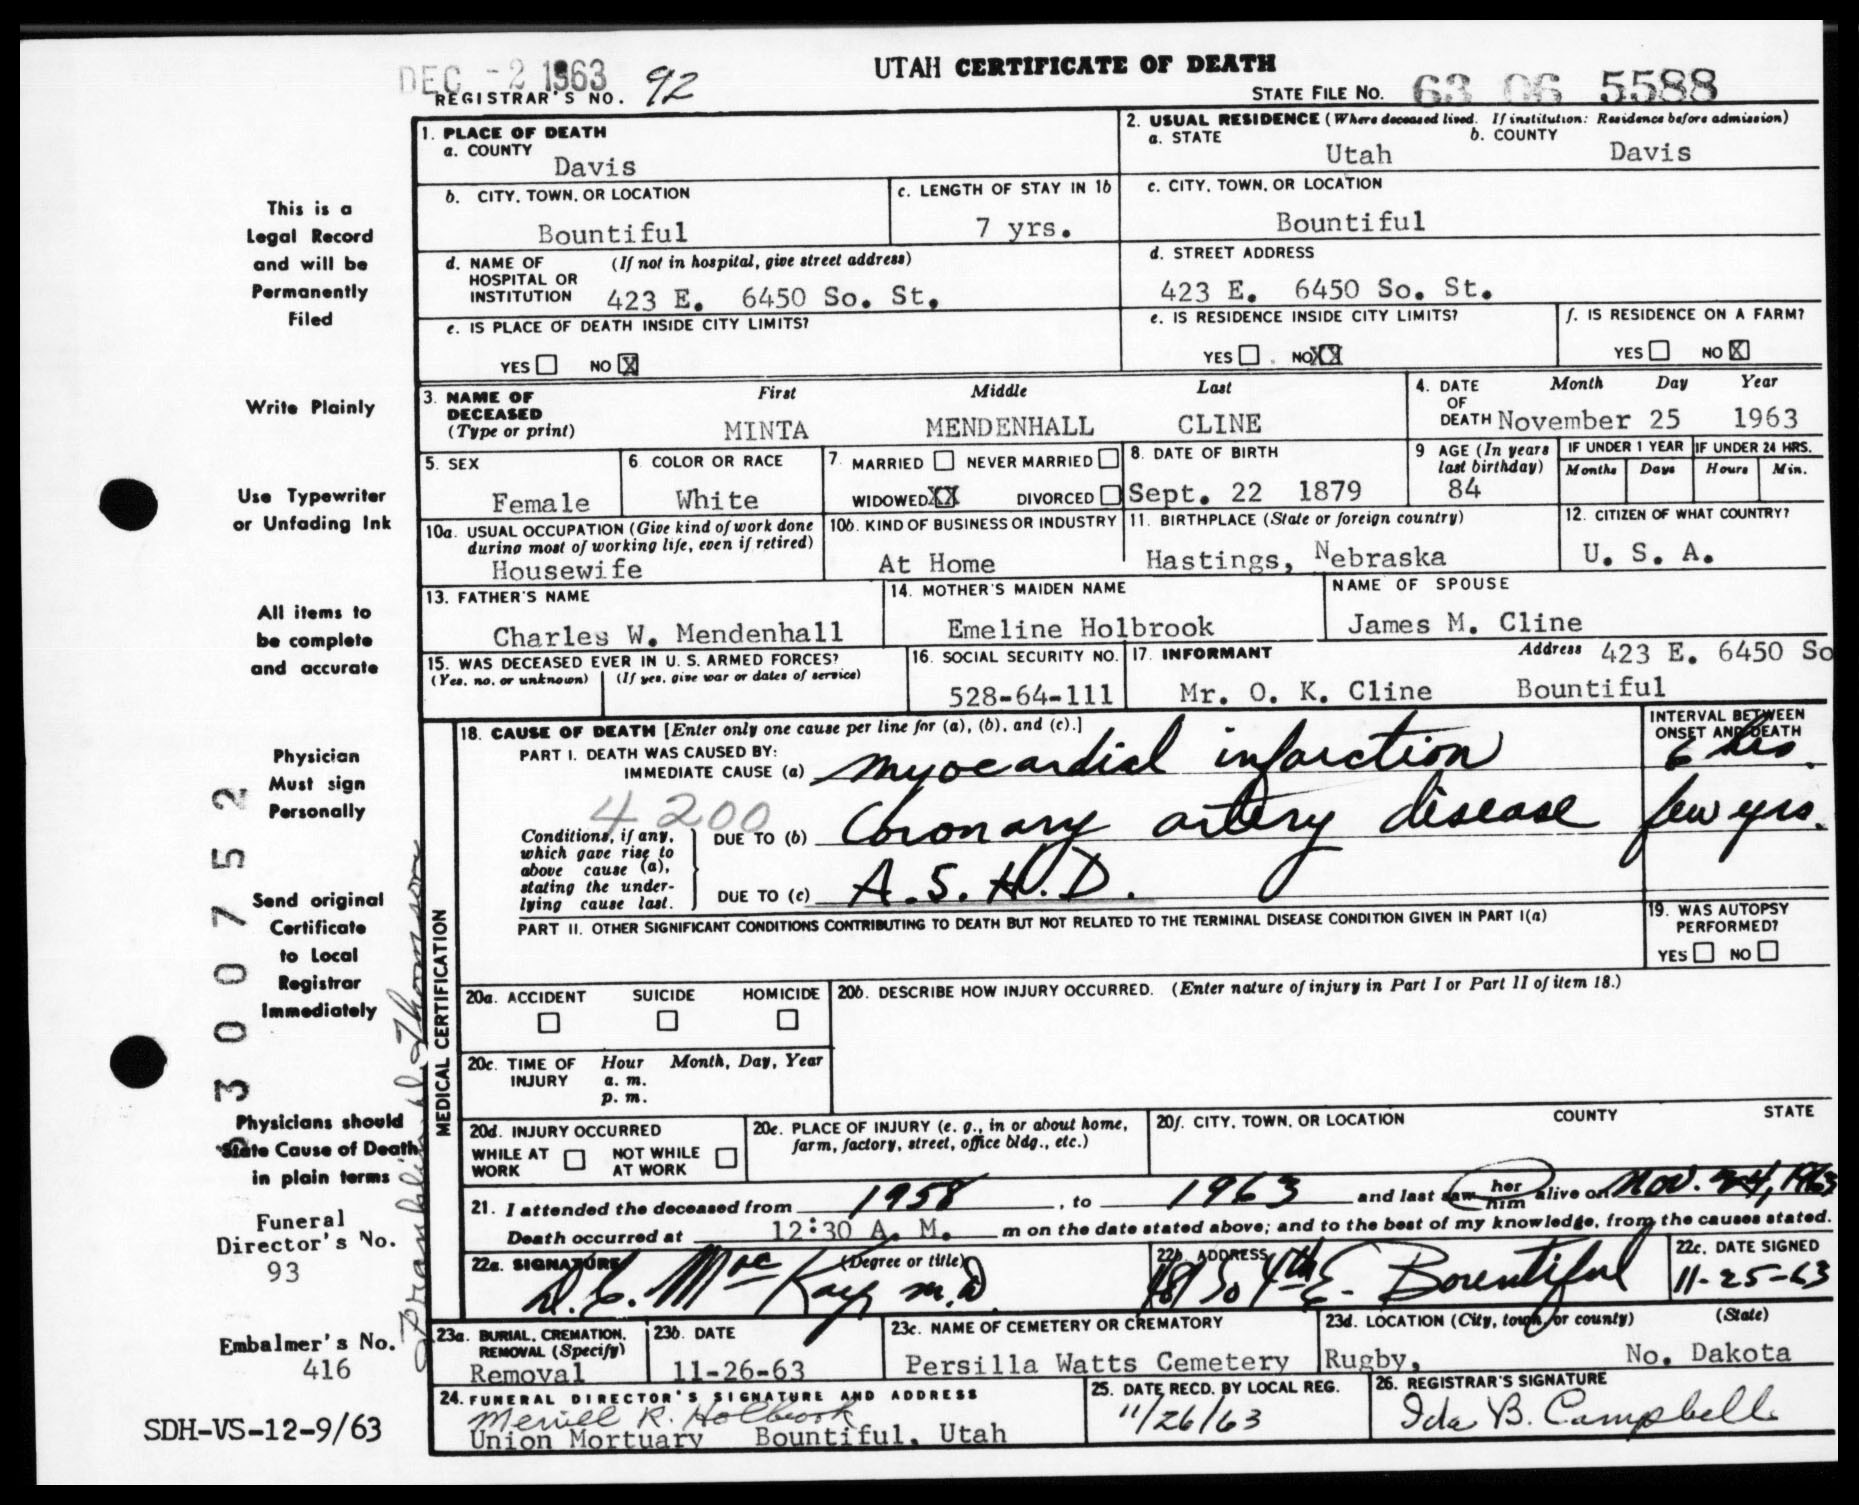 DEC -2 1963
UTAH CERTIFICATE OF DEATH
REGISTRAR'S NO. 92
STATE FILE NO. 63 06 5588
1. PLACE OF DEATH
a. COUNTY
Davis
2. USUAL RESIDENCE (Where deceased lived. If institution: Residence before admission)
a. STATE Utah b. COUNTY Davis
b. CITY, TOWN, OR LOCATION
Bountiful
c. LENGTH OF STAY IN 1b
7 yrs.
c. CITY, TOWN, OR LOCATION
Bountiful
d. NAME OF HOSPITAL OR INSTITUTION (If not in hospital, give street address)
423 E. 6450 So. St.
d. STREET ADDRESS
423 E. 6450 So. St.
e. IS PLACE OF DEATH INSIDE CITY LIMITS?
YES NO X
e. IS RESIDENCE INSIDE CITY LIMITS?
YES NO XX
f. IS RESIDENCE ON A FARM?
YES NO X
3. NAME OF DECEASED (Type or print)
First Middle Last
MINTA MENDENHALL CLINE
4. DATE OF DEATH Month Day Year
November 25 1963
5. SEX
Female
6. COLOR OR RACE
White
7. MARRIED NEVER MARRIED
WIDOWED XX DIVORCED
8. DATE OF BIRTH
Sept. 22 1879
9 AGE (In years last birthday)
84
IF UNDER 1 YEAR IF UNDER 24 HRS.
Months Days Hours Min.
10a. USUAL OCCUPATION (Give kind of work done during most of working life, even if retired)
Housewife
10b. KIND OF BUSINESS OR INDUSTRY
At Home
11. BIRTHPLACE (State or foreign country)
Hastings, Nebraska
12. CITIZEN OF WHAT COUNTRY?
U. S. A.
13. FATHER'S NAME
Charles W. Mendenhall
14. MOTHER'S MAIDEN NAME
Emeline Holbrook
NAME OF SPOUSE
James M. Cline
15. WAS DECEASED EVER IN U. S. ARMED FORCES?
(Yes, no, or unknown) (If yes, give war or dates of service)
16. SOCIAL SECURITY NO.
528-64-111
17. INFORMANT Address 423 E. 6450 So
Mr. O. K. Cline Bountiful
MEDICAL CERTIFICATION
18. CAUSE OF DEATH [Enter only one cause per line for (a), (b), and (c).]
INTERVAL BETWEEN ONSET AND DEATH
PART I. DEATH WAS CAUSED BY:
IMMEDIATE CAUSE (a) myocardial infarction 6 hrs.
4200
Conditions, if any, which gave rise to above cause (a), stating the underlying cause last.
DUE TO (b) Coronary artery disease few yrs.
DUE TO (c) A.S.H.D.
PART II. OTHER SIGNIFICANT CONDITIONS CONTRIBUTING TO DEATH BUT NOT RELATED TO THE TERMINAL DISEASE CONDITION GIVEN IN PART I(a)
19. WAS AUTOPSY PERFORMED?
YES NO
20a. ACCIDENT SUICIDE HOMICIDE
20b. DESCRIBE HOW INJURY OCCURRED. (Enter nature of injury in Part I or Part II of item 18.)
20c. TIME OF INJURY Hour Month, Day, Year
a. m.
p. m.
20d. INJURY OCCURRED
WHILE AT WORK NOT WHILE AT WORK
20e. PLACE OF INJURY (e. g., in or about home, farm, factory, street, office bldg., etc.)
20f. CITY, TOWN, OR LOCATION COUNTY STATE
21. I attended the deceased from 1958, to 1963 and last saw her him alive on Nov. 24, 1963
Death occurred at 12:30 A. M. m on the date stated above; and to the best of my knowledge, from the causes stated.
22a. SIGNATURE (Degree or title)
D. C. MacKay m.d.
22b. ADDRESS
So 4th E. Bountiful
22c. DATE SIGNED
11-25-63
23a. BURIAL, CREMATION, REMOVAL (Specify)
Removal
23b. DATE
11-26-63
23c. NAME OF CEMETERY OR CREMATORY
Persilla Watts Cemetery
23d. LOCATION (City, town, or county) (State)
Rugby, No. Dakota
24. FUNERAL DIRECTOR'S SIGNATURE AND ADDRESS
Merrill R. Holbrook
Union Mortuary Bountiful, Utah
25. DATE RECD. BY LOCAL REG.
11/26/63
26. REGISTRAR'S SIGNATURE
Ida B. Campbell
This is a
Legal Record
and will be
Permanently
Filed
Write Plainly
Use Typewriter
or Unfading Ink
All items to
be complete
and accurate
Physician
Must sign
Personally
Send original
Certificate
to Local
Registrar
Immediately
Physicians should
State Cause of Death
in plain terms
Funeral
Director's No.
93
Embalmer's No.
416
SDH-VS-12-9/63
300752
Thomson